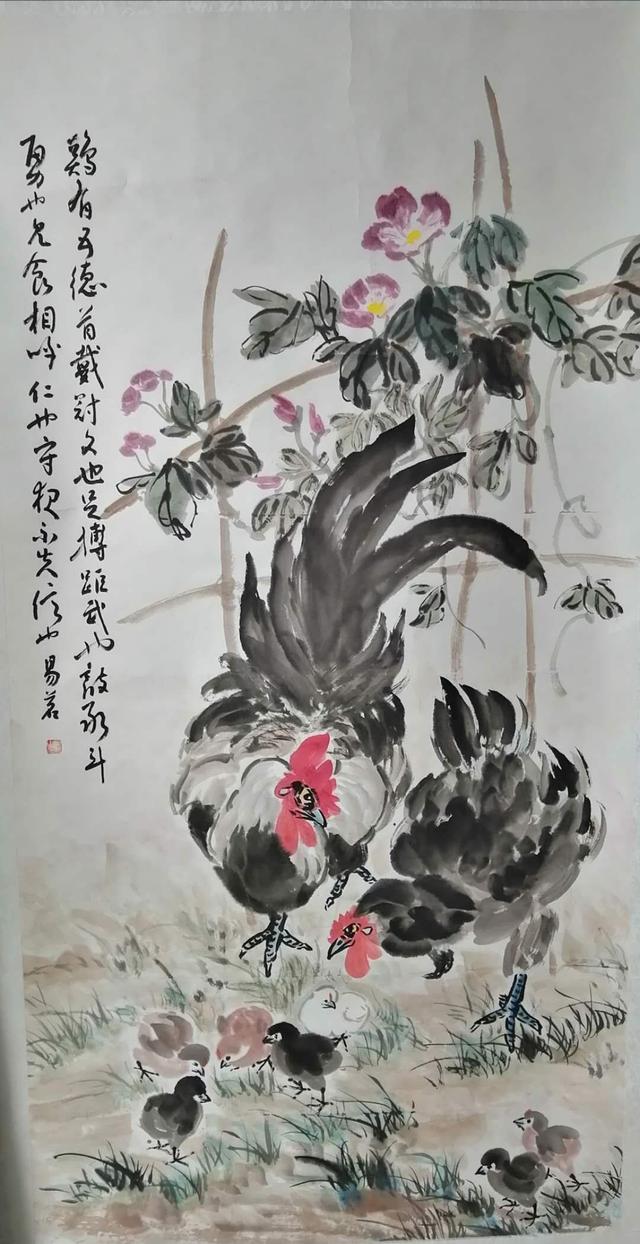 鷄有五德首戴冠文也足搏距武也敌敢斗
勇也见食相呼仁也守夜不失信也易